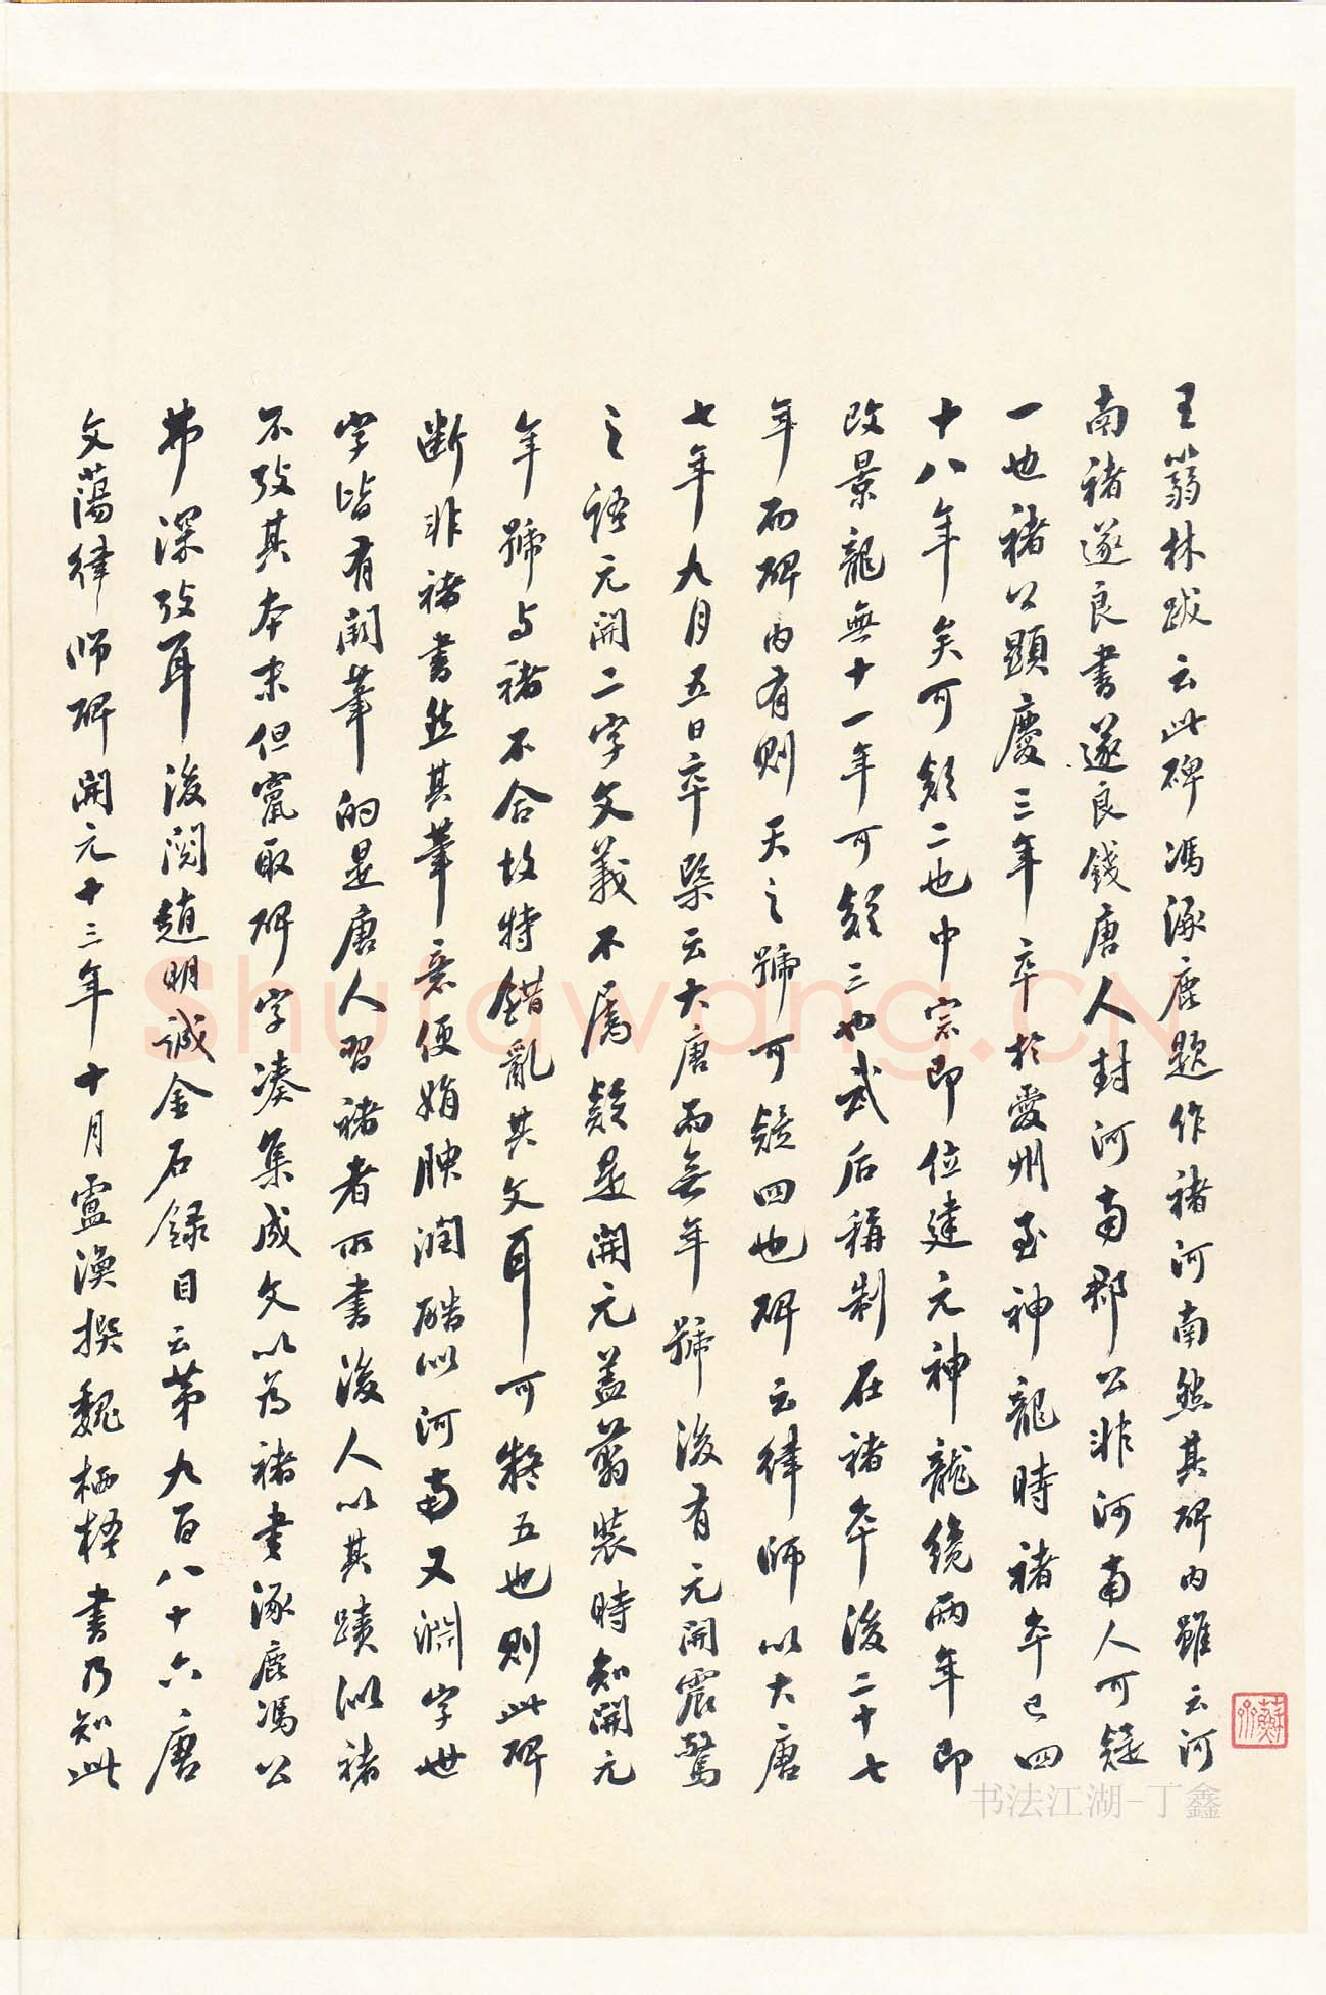 王蒻林跋云此碑馮涿鹿題作褚河南然其碑内雖云河
南褚遂良書遂良錢唐人封河南郡公非河南人可疑
一也褚公顯慶三年卒於愛州至神龍時褚卒已四
十八年矣可疑二也中宗即位建元神龍纔兩年即
改景龍無十一年可疑三也武后稱制在褚卒後二十七
年而碑内有則天之號可疑四也碑云律師以大唐
七年九月五日卒槩云大唐而無年號後有元開震驚
之語元開二字文義不属疑是開元蓋翦裝時知開元
年號与褚不合故特錯亂其文耳可疑五也則此碑
断非褚書然其筆意便娟腴潤酷似河南又淵字世
字皆有闕筆的是唐人習褚者所書後人以其蹟似褚
不攷其本末但竄取碑字凑集成文以为褚書涿鹿馮公
弗深攷耳後閲趙明誠金石録目云第九百八十六唐
文蕩律師碑開元十三年十月盧渙撰魏栖梧書乃知此
Shufawang.CN
书法江湖-丁鑫